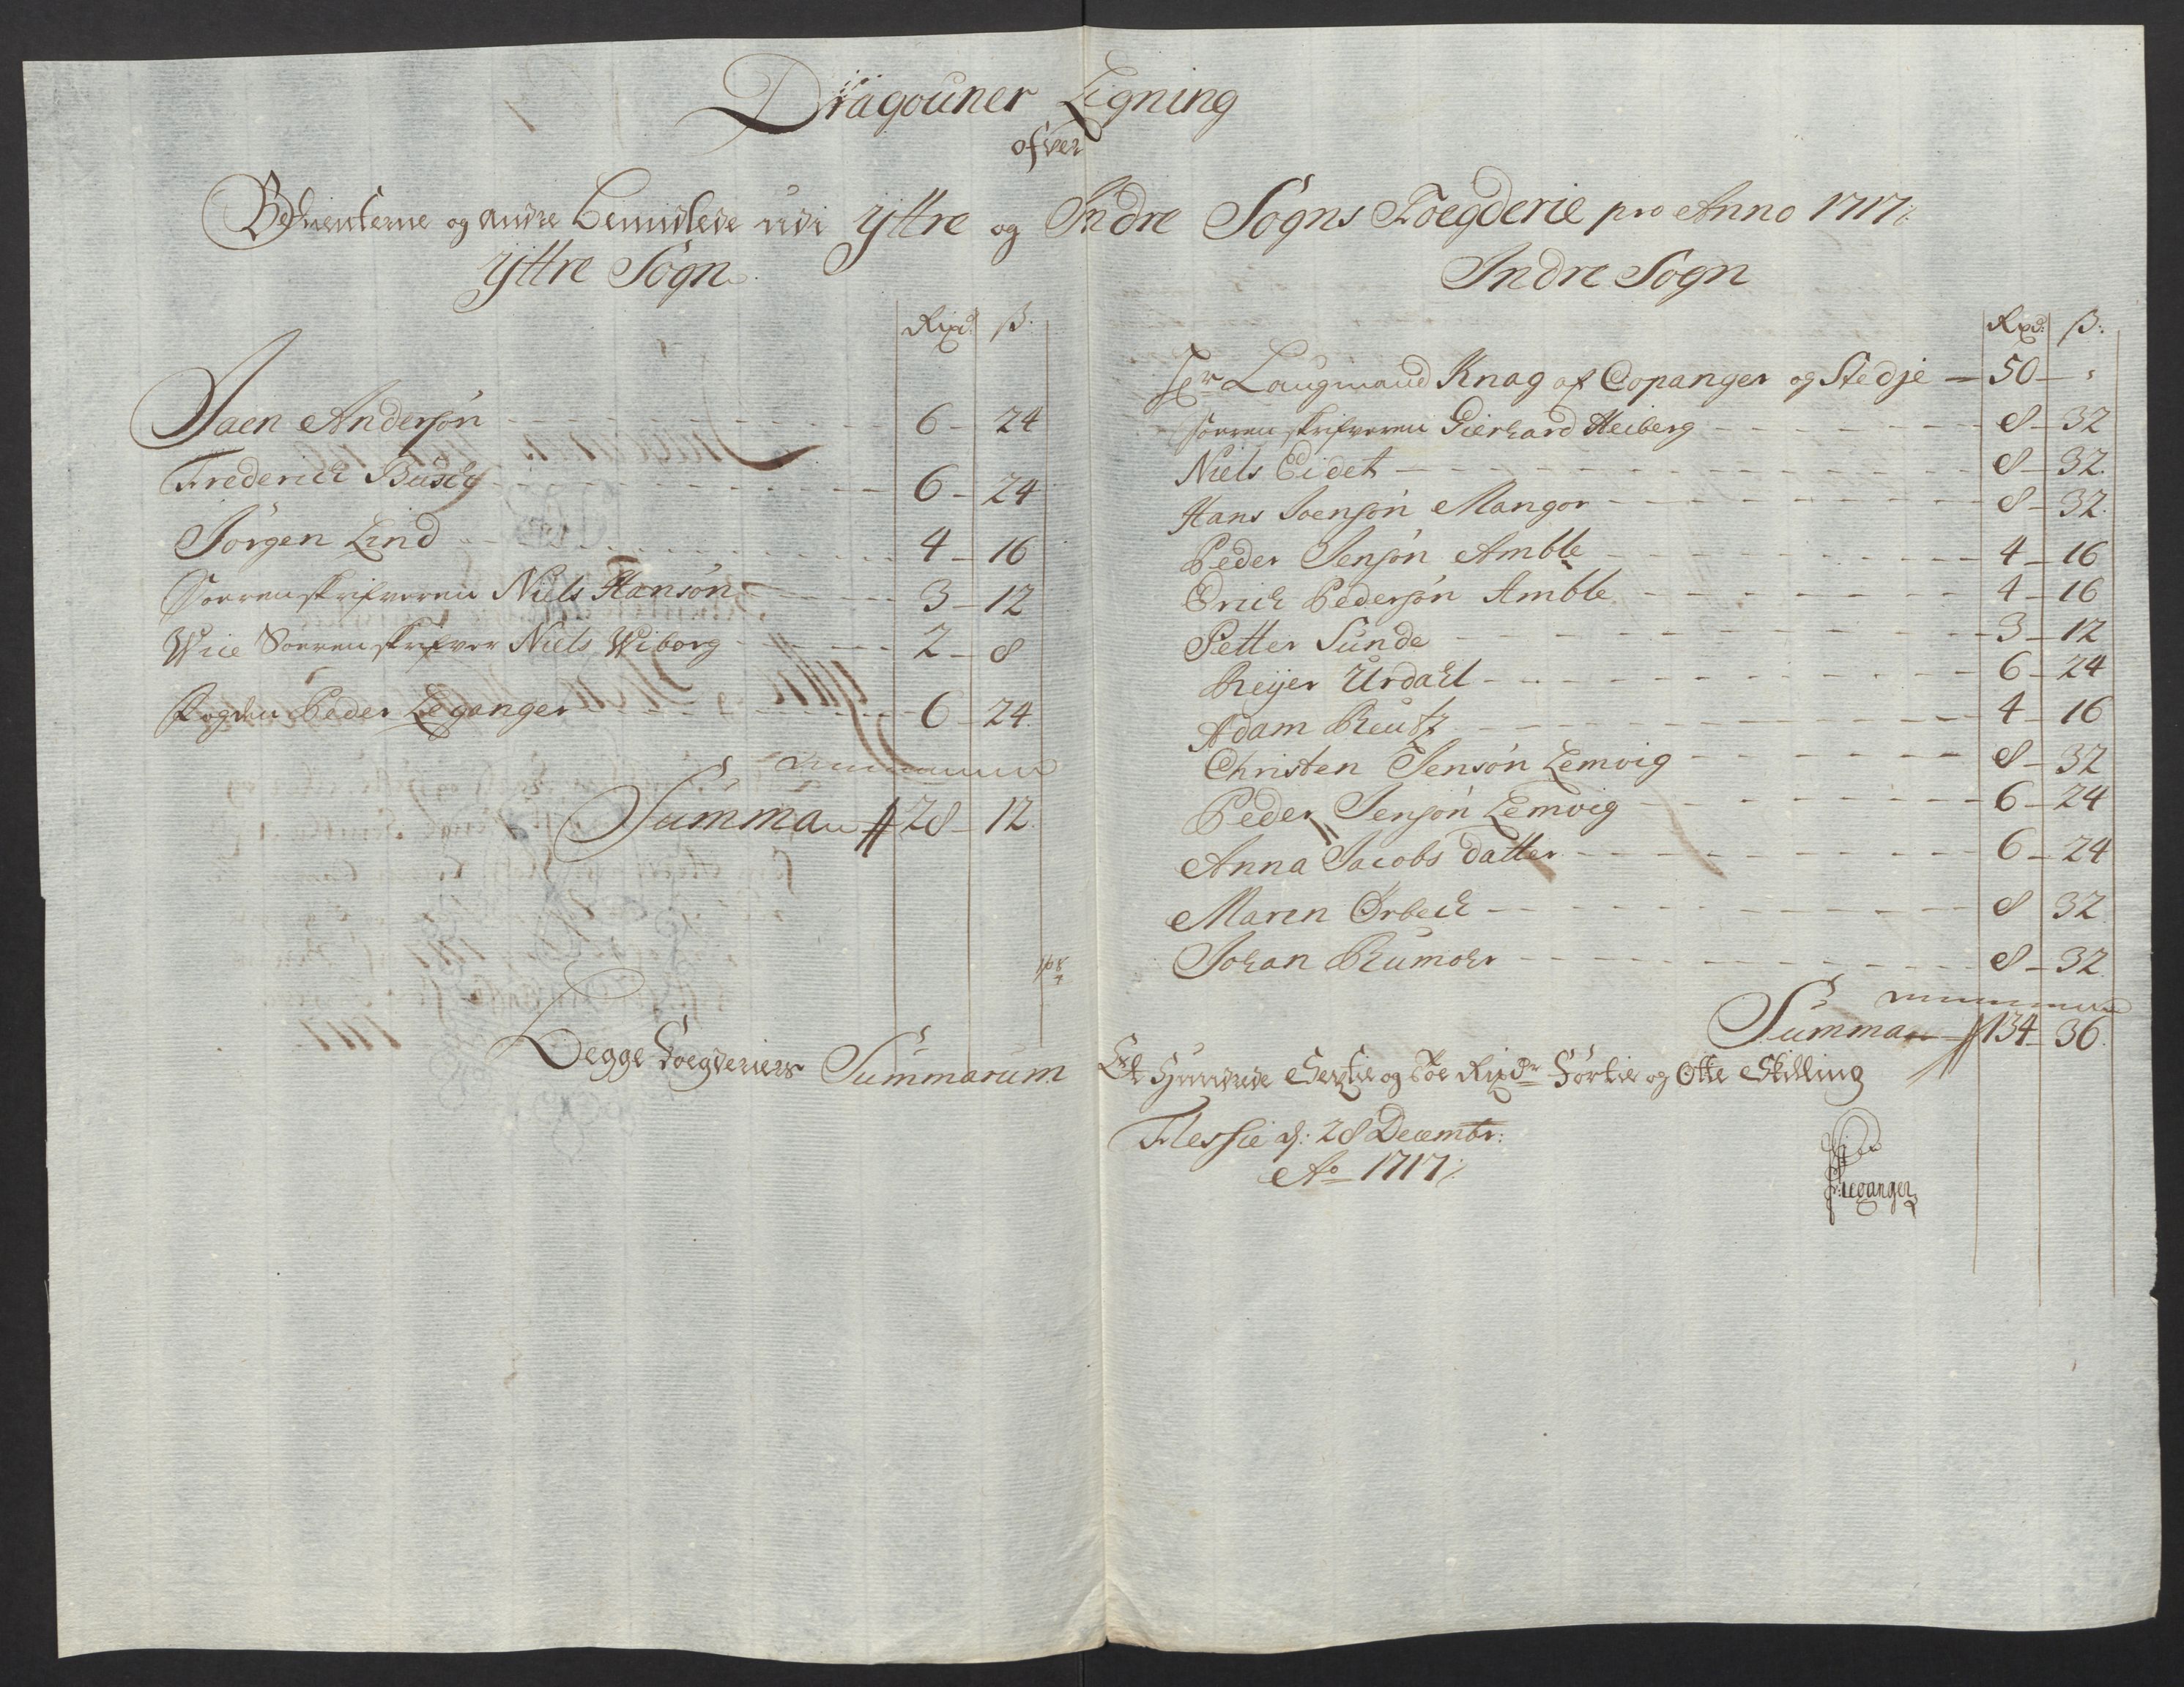 Dragouner Ligning
ofver
Betienterne og andre bemidlede udi Yttre og Indre Sogns Foegderie pro Anno 1717
Yttre Sogn
Rixd: ß.
Jaen Andersøn 6 - 24
Frederich Busch 6 - 24
Jørgen Lind 4 - 16
Sorrenskrifveren Niels Hansøn 3 - 12
Wice Sorrenskrifver Niels Wiborg 2 - 8
Fogden Peder Leganger 6 - 24
Summa 28 - 12
Indre Sogn
Rxd: ß:
Hr Laugmand Knag af Copanger og Stedje 50 -
Sorrenskrifveren Gierhard Heiberg 8 - 32
Niels Eidet 8 - 32
Hans Joensøn Mangor 8 - 32
Peder Jensøn Amble 4 - 16
Erich Pedersøn Amble 4 - 16
Petter Sunde 3 - 12
Reijer Urdahl 6 - 24
Adam Reutz 4 - 16
Christen Jensøn Lemvig 8 - 32
Peder Jensøn Lemvig 6 - 24
Anna Jacobs datter 6 - 24
Maren Ørbech 8 32
Johan Rumohr 8 - 32
Summa 134 - 36
Begge Foegderiers Summarum Et Hundrede Sextie og Toe Rixdr Førtie og Otte Skilling
Flessie d: 28 Decembr:
Ao 1717
Leganger